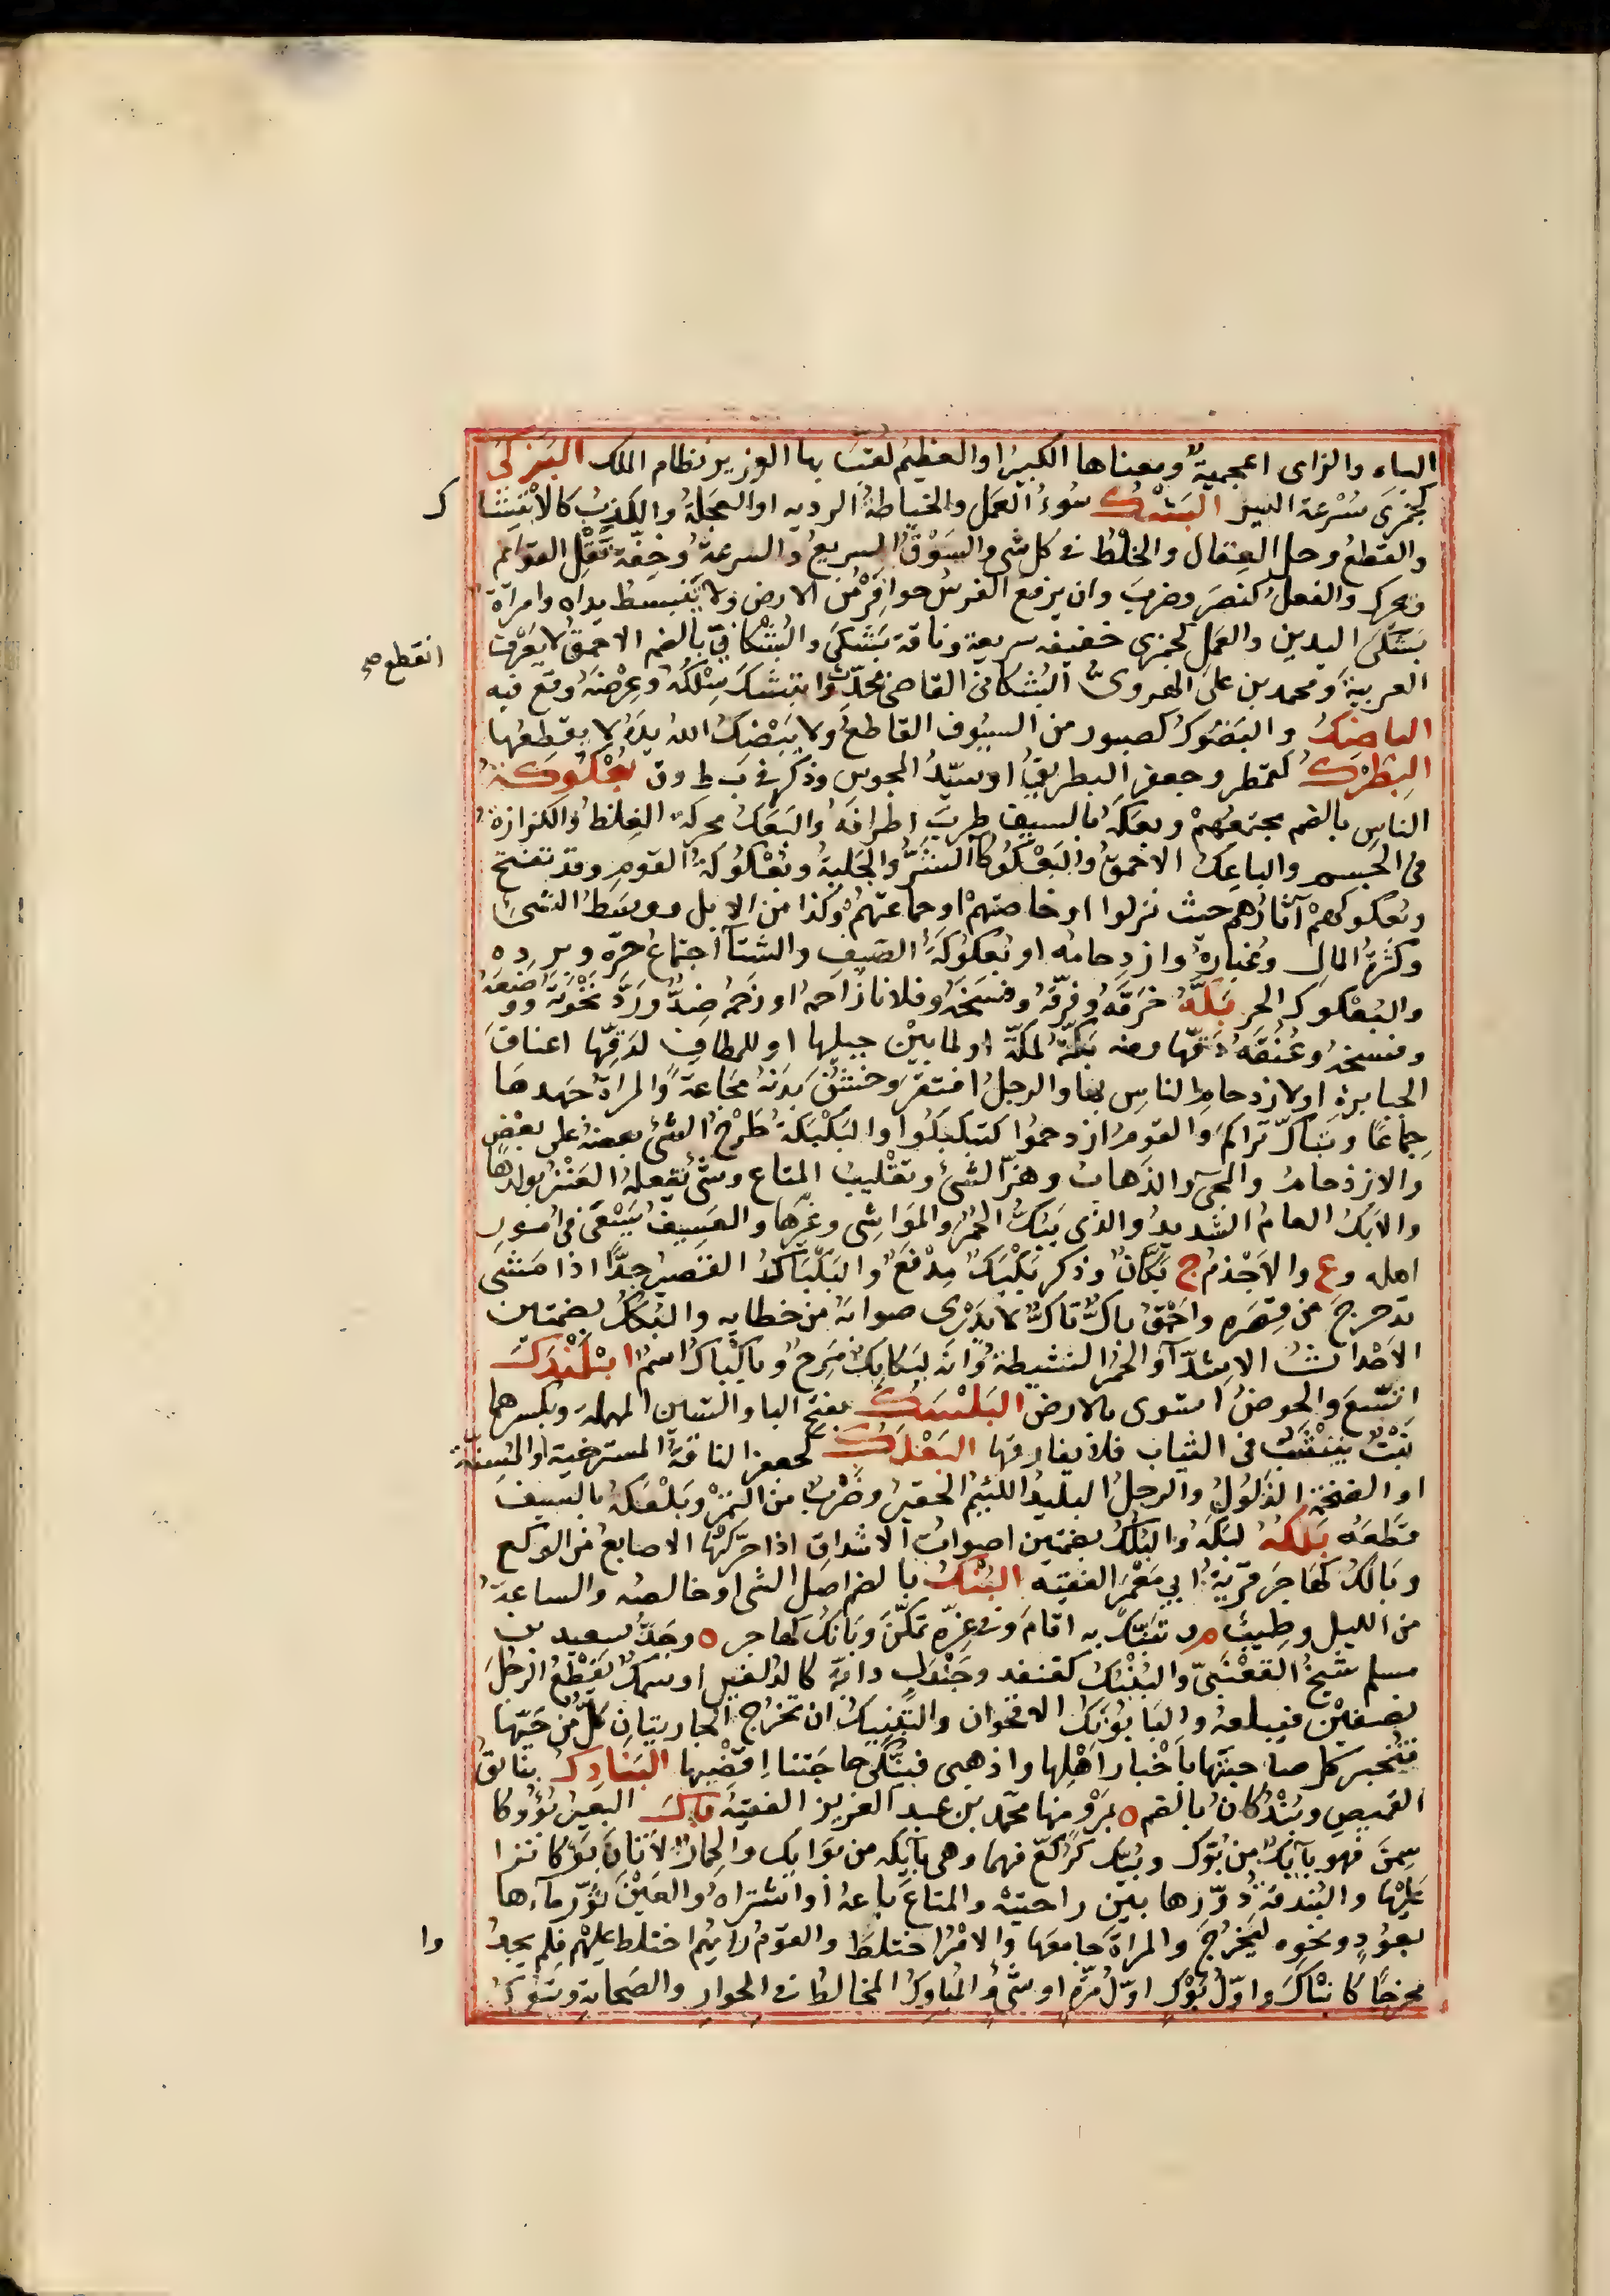 الباء والزاى اعجمية ومعناها الكبير او العظيم لقب بها الوزير نظام الملك البَزكى
كجمزى سُرْعة السير البَشْكُ سُوءُ العَمَل والخياطة الرديه او العجَلة والكذبُ كالابْتِشا ك
والقطعُ وحل العِقال والخَلْطُ فى كل شى والسَوْقُ السريعُ والسرعة وخِفّة نَقْل القوائم
ويحرك والفعلُ كنصَرَ وضربَ وان يرفع الفرسُ حوافِرَهُ من الارض ولا تنبسط يداه وامراة
بَشَكَى اليدين والعَمَل كجمزى خفيفه سريعة وناقة بَشَكَى والبُشْكانىّ بالضم الاحمقُ لا يَعْرِف
العربيةَ ومحمد بن على الهروىُّ البُشْكانىّ القاضى محدِّث وابتشكَ سِلْكُهُ وعِرْضَهُ وقع فيه
انقطع صح
الباضِكُ والبَضُوكُ كصبور من السيُوف القاطعُ ولا يَبْضِكُ اللهُ يدَهُ لا يقطعُها
البِطْرَكُ كقمطر وجعفر البِطريقُ او سيّدُ المجوس وذكر فى ب ط ر ق بُعْكُوكَةُ
الناسِ بالضم مجتمعُهمْ وبعكَهُ بالسيف ضربَ اطرافَهُ والبَعَكُ محركة الغِلظُ والكزازةُ
فى الجسم والباعِكُ الاحمقُ والبَعْكُوكاُ الشَرُّ والجَلبةُ وبُعْكُوكَةُ القوم وقد تفتح
وبُعكوكهمْ آثارُهم حيث نزلوا او خاصّتهمْ او جماعتهمْ وكذا من الابل ووسَطُ الشىءِ
وكَثْرَةُ المالِ وغُبارهُ وازدحامه او بُعكوكَةُ الصَيفِ والشتآ اجتماعُ حرّه وبرده
والبُعْكوك الحر بَكَّهُ خَرَقَهُ وفرّقَهُ وفسَخَهُ وفلانا زَاحمهُ او زحَمهُ ضِدٌّ ورَدَّ نخْوَتَهُ ووضعَهُ
وفسخهُ وعُنُقَهُ دَقَّها ومنه بَكّةُ لمكّةَ او لما بَيْن جبليها او للمَطافِ لدَقِّها اعناقَ
الجبابرة او لازدحام الناس بها والرجلُ افتقرَ وخشُنَ بَدَنُهُ شجاعةً والمراةَ جَهدها
جِماعًا وتَباكَّ تراكمَ والقومُ ازدحموا كتبَكبَكُوا والبَكْبَكَةُ طَرْحُ الشىءِ بعضهُ على بعض
والازدحامُ والمجىءُ والذَهابُ وهزّ الشىءِ وتقْليبُ المتاع وشىءٌ تفعلهُ العَنْزُ بولدِها
والابَكُّ العامُ الشديدُ والذى يَبُكُّ الحُمُرَ والمَوَاشِى وغَيْرَها والعَسِيفُ يَسْعَى فى امُورِ
اهله وع والاَجْذَمُ ج بُكّانٌ وذكر بَكْبَكٌ مِدْفَعٌ والبَكْبَاكُ القَصيرُ جدًّا اذا مَشَى
تدحرجَ من قِصَرِهِ واَحْمَقُ باكٌّ تاكٌّ لا يَدْرى صوابَهُ من خطايهِ والبُكُكُ بضمتين
الاَحْداثُ الاشِدّآ والحُمُرُ النشيطةُ وَانّه لبُكابِكٌ مَرِحٌ وباكُباكُ اسمٌ ابْلَنْدَكَ
اتَّسَعَ والحوضُ استوى بالارض البَلْسَكُ بفتح البا والسّين المهملة وبكسرهما
نَبْتٌ يَنْشَبُ فى الثياب فلا يفارقها البَعْلَكُ كجعفر الناقةُ المسترخية او المُسِنّة
او الضخمة الذَلُولُ والرجلُ البليدُ اللئيمُ الحقيرُ وضَرْبٌ من التمرْ وبَلْعَكَهُ بالسيف
قطعَهُ بَلَكَهُ لَبَكَهُ والبُلُكُ بضمتين اصواتُ الاشداق اذا حرّكتْها الاصابعُ من الوَلَع
وبَالَكُ كهاجَر قَرْيةُ ابى مَعْمَرٍ الفقيه البُنْكُ بالضم اصلُ الشى او خالصُه والساعةُ
من الليل وطِيبٌ م وتَبَنَّكَ به اقامَ وفى عِزّه تمكّنَ وبَانَكُ كهاجر ٥ وجَدُّ سعيد بن
مسلم شيخُ القَعْنَبىّ والبُنْبُكُ كقنفد وجَنْدَل دابّة كالدُلفين او سَمَكٌ يَقْطعُ الرجُلَ
نصفَيْن فيبلعهُ والبَابُونَكُ الاقحوان والتَبْنِيكُ ان تخرُج الجاريتانِ كلٌّ من حَيِّها
فتُخبر كل صاحبتَها باَخْبار اَهْلِها واذهبى فبَنِّكى حاجَتنا اِقْضِيها البَنادِكُ بنائقُ
القميص وبُنْدُكانُ بالضم ٥ بمَرْو منها محمّد بن عبد العزيز الفقيهُ باكَ البعيرُ بُؤُوكًا
سَمِنَ فهو بآئكٌ من بُوَّكٍ وبُيَّك كرُكّعٍ فيهما وهى بآئكه من بَوَائك والحِمارُ الاَتانَ بَوْكًا نَزا
عَلَيْها والبُندقَةَ دوَّرَها بين راحتيْه والمتاعَ باعهُ او اشتراهُ والعَيْنَ ثوَّر مآءَها
بعُودٍ ونحوِه ليَخْرُجَ والمراةَ جامعَها والامْرُ اختلطَ والقومُ رايَهُم اختلط عليهمْ فلم يجدُ وا
مخرجًا كانْباكَ واوّلُ بَوْكٍ اوّلُ مَرّةٍ او شَىْءٍ والمُباوِكُ المخالطُ فى الجوار والصَحابةِ وتَبُوكُ